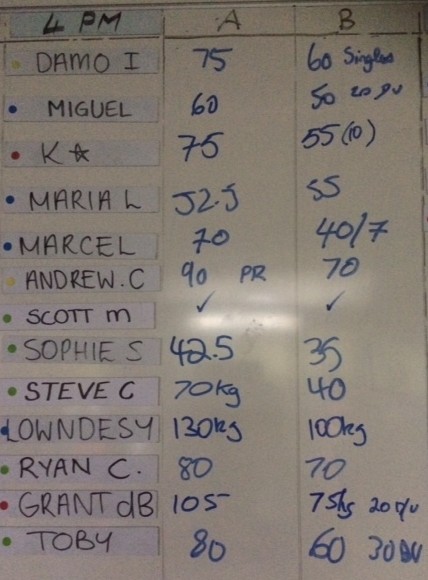 4 PM A B
DAMO I 75 60 Singles
MIGUEL 60 50
K☆ 75 55 (10)
MARIA L 52.5 55
MARCEL 70 40/7
ANDREW.C 90 PR 70
SCOTT M ✓ ✓
SOPHIE S 42.5 35
STEVE C 70kg 40
LOWNDESY 130kg 100kg
RYAN C. 80 70
GRANT dB 105 75kg
TOBY 80 60